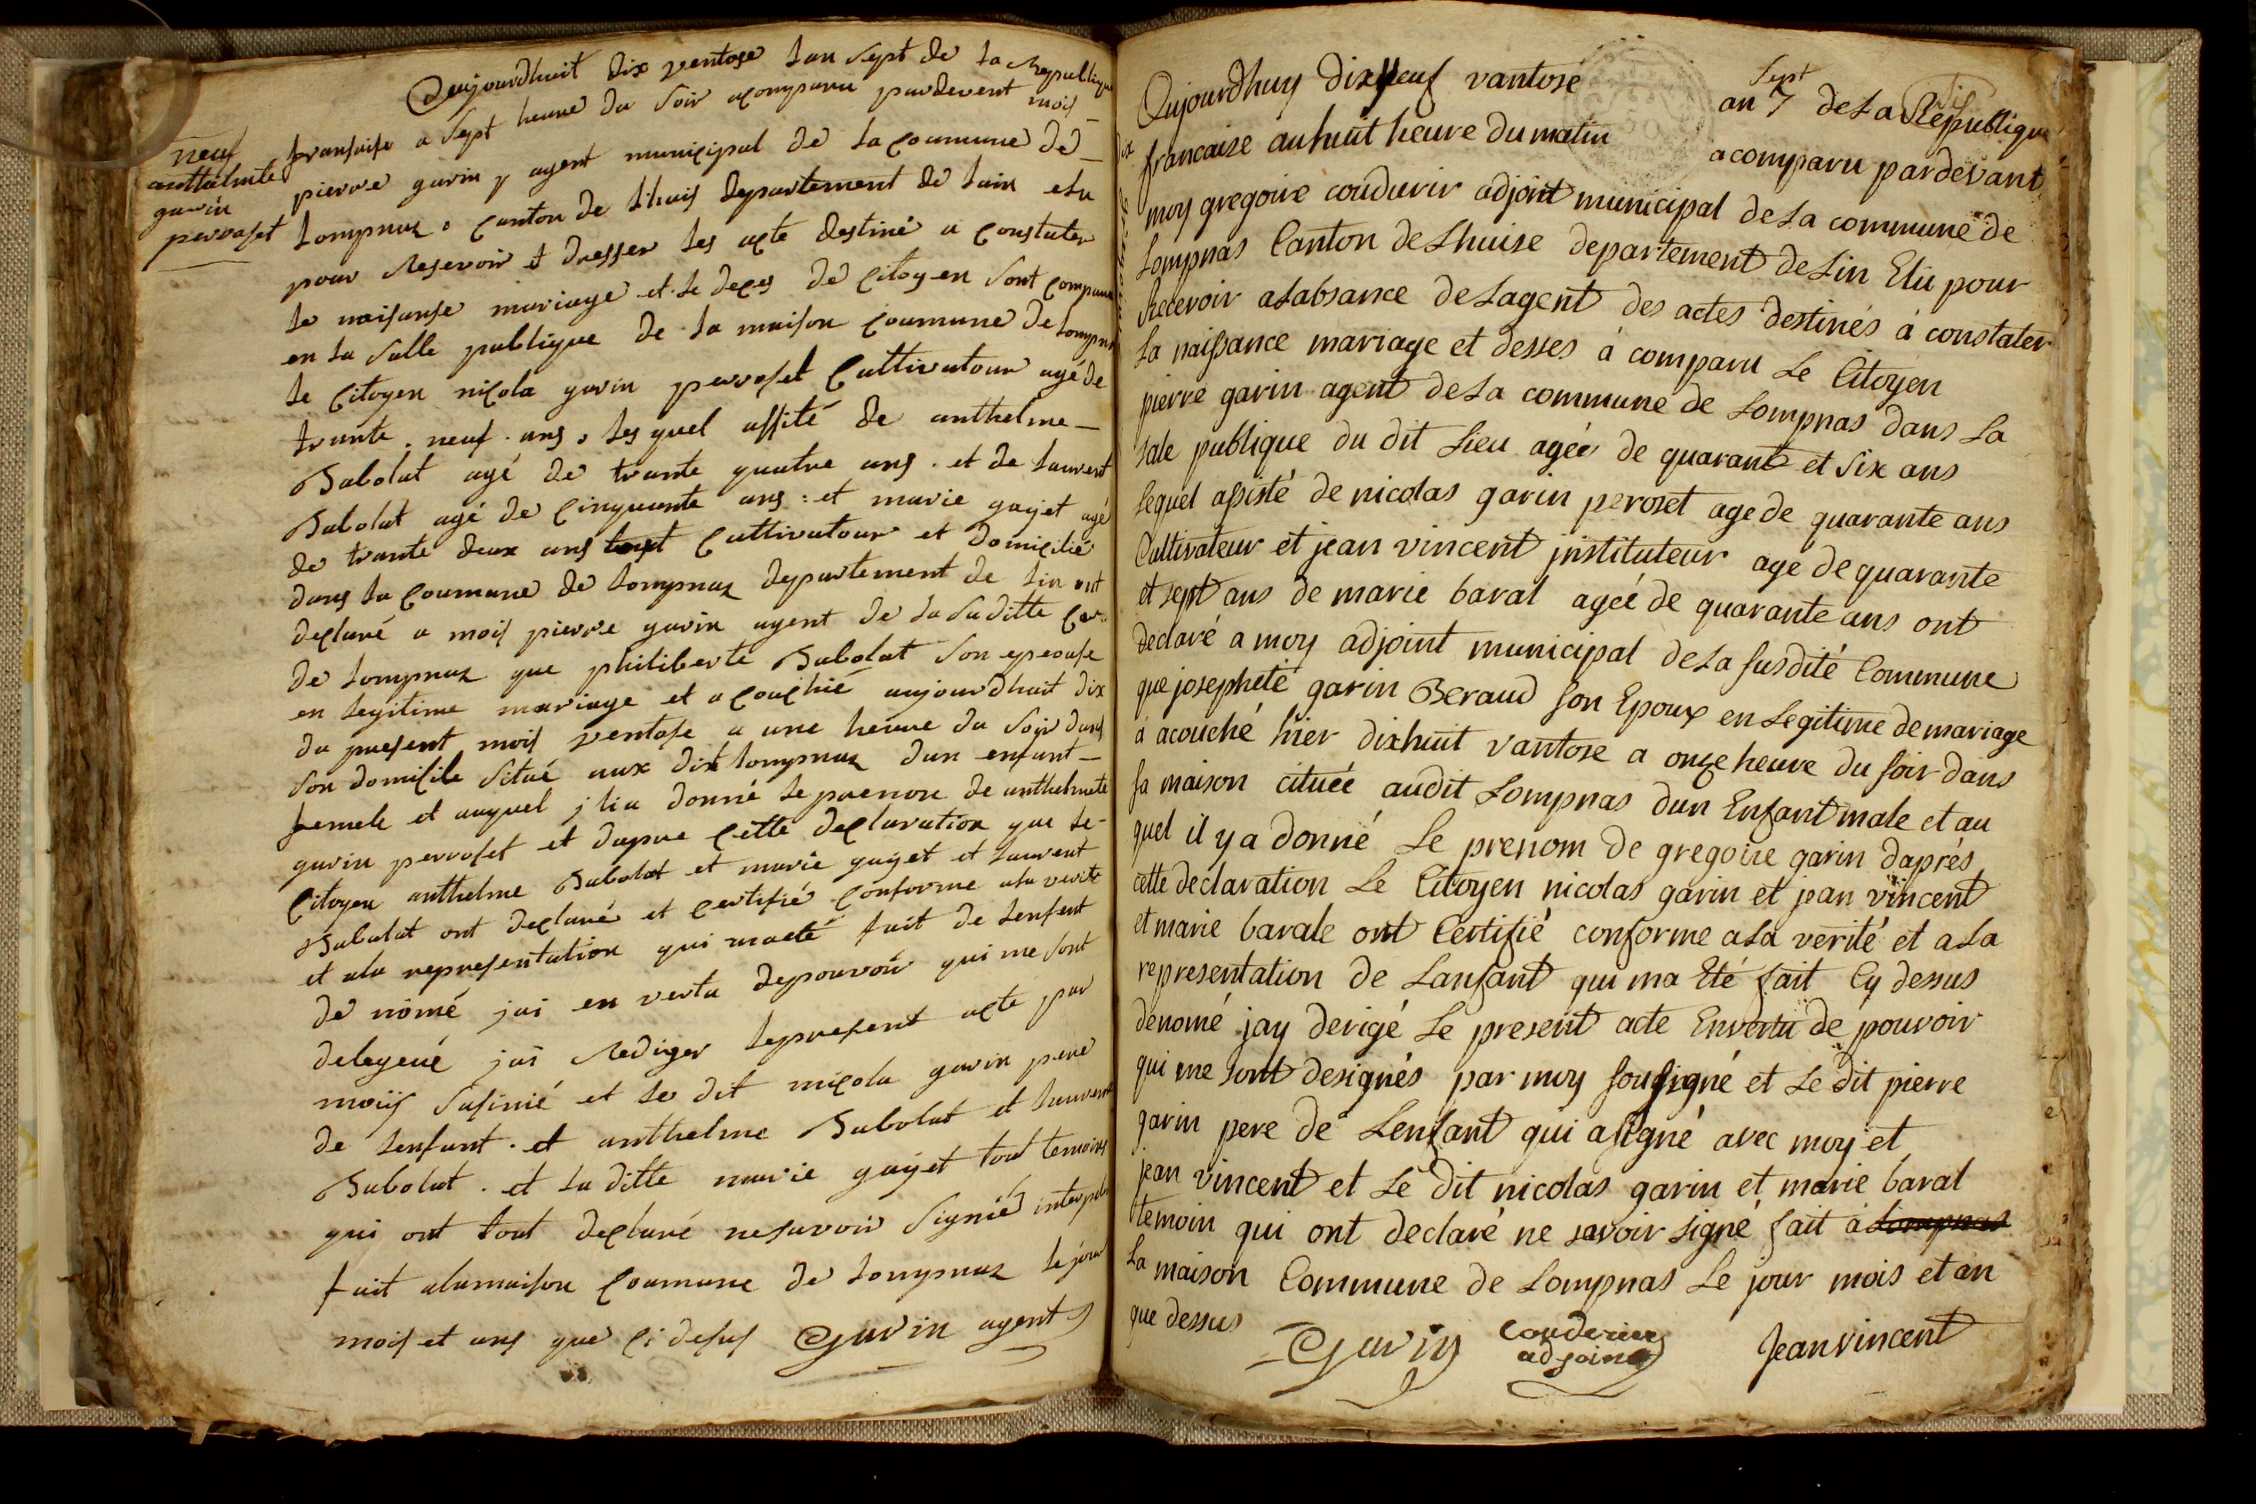 Aujourdhuit dix ventose lan sept de la Republique
fransaise a sept heure du soir acomparu pardevent mois
pierre garin y agent municipal de la coumune de
lompnaz canton de lhuis departement de lain elu
pour reservoir et dresser les acte destiné a constater
le naisanse mariage et le deces de citoyen sont comparu
en la salle publique de la maison coumune de lompnaz
le citoyen nicola garin perroset cultivatour agé de
trante neuf ans lesquel assité de anthelme
Babolat agé de trante quatre ans et de laurent
Babolat agé de cinquante ans et marie gayet agé
de trante deux ans tout cultivatour et domicilié
dans la coumune de lompnaz departement de lin ont
declaré a mois pierre garin agent de la suditte
de lompnaz que philiberte Babolat son epeouse
en legitime mariage et acouchié aujourdhuit dix
du present mois ventose a une heure du soir dans
son domisile situé aux dit lompnaz dun enfant
femele et auquel jlia donné le prenon de anthelmete
garin perroset et dapre cette declaration que le
citoyen anthelme Babolat et marie gayet et laurent
Babolat ont declaré et certifié conforme ala verite
et ala representation qui maeté fait de lenfent
de nomé jai en vertu depouvoir qui me sont
delegeué jai rediger lepresent acte par
moiis susinié et le dit nicola garin pere
de lenfant et anthelme Babolat et laurent
Babolat et la ditte marie gayet tout temoins
qui ont tout declaré nesavoir signié
fait alamaison coumune de lompnaz le jour
mois et ans que ci desus Garin agent
neuf
anthelmete
garin
perroset
Aujourdhuy dixneuf vantose an sept 7 de La Republique
francaise auhuit heure du matin acomparu pardevant
moy gregoire coudurir adjoint municipal de La commune de
Lompnas Canton de Lhuise departement de Lin Elu pour
Recevoir alabsance de Lagent des actes destinés à constater
La naissance mariage et desses à comparu Le Citoyen
pierre garin agent de La commune de Lompnas dans La
sale publique du dit Lieu agée de quarant et six ans
Lequel assisté de nicolas garin peroset age de quarante ans
Cultivateur et jean vincent jnstituteur age de quarante
et sept ans de marie baral agée de quarante ans ont
declaré a moy adjoint municipal de La susdité Commune
que josephete garin Beraud son Epoux en Legitime de mariage
à acouché hier dixhuit vantose a onze heure du soir dans
sa maison cituée audit Lompnas dun Enfant male et au
quel il y a donné Le prenom de gregoire garin daprés
cette declaration Le Citoyen nicolas garin et jean vincent
et marie barale ont Certifié conforme ala verité et ala
representation de Lanfant qui ma Eté fait Cy dessus
dénomé jay derigé Le present acte Envertu de pouvoir
qui me sont designés par moy sousigné et Le dit pierre
garin pere de Lenfant qui asigné avec moy et
jean vincent et Le dit nicolas garin et marie baral
temoin qui ont declaré ne savoir signé fait à Lompnas
La maison Commune de Lompnas Le jour mois et an
que dessus
Garin Couderier adjoint Jean vincent